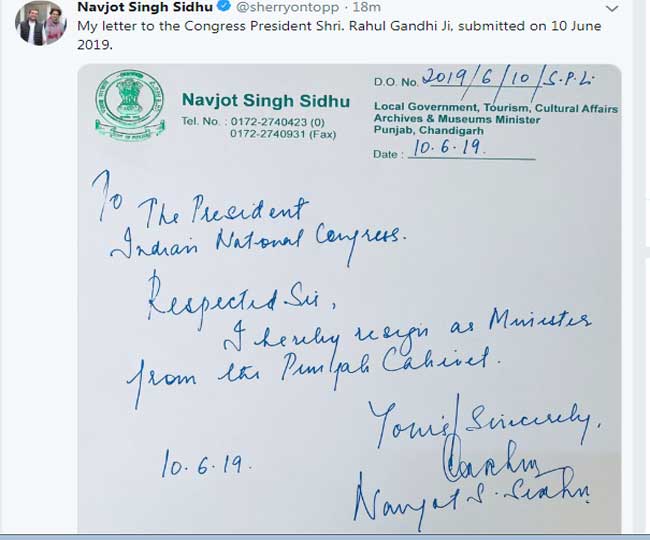 Navjot Singh Sidhu @sherryontopp · 18m
My letter to the Congress President Shri. Rahul Gandhi Ji, submitted on 10 June
2019.
Navjot Singh Sidhu
Tel. No. : 0172-2740423 (0)
0172-2740931 (Fax)
D.O. No. 2019/6/10/S.P.L.
Local Government, Tourism, Cultural Affairs
Archives & Museums Minister
Punjab, Chandigarh
Date : 10.6.19.
To The President
Indian National Congress.
Respected Sir,
I hereby resign as Minister
from the Punjab Cabinet.
Yours Sincerely,
10.6.19.
Navjot S. Sidhu